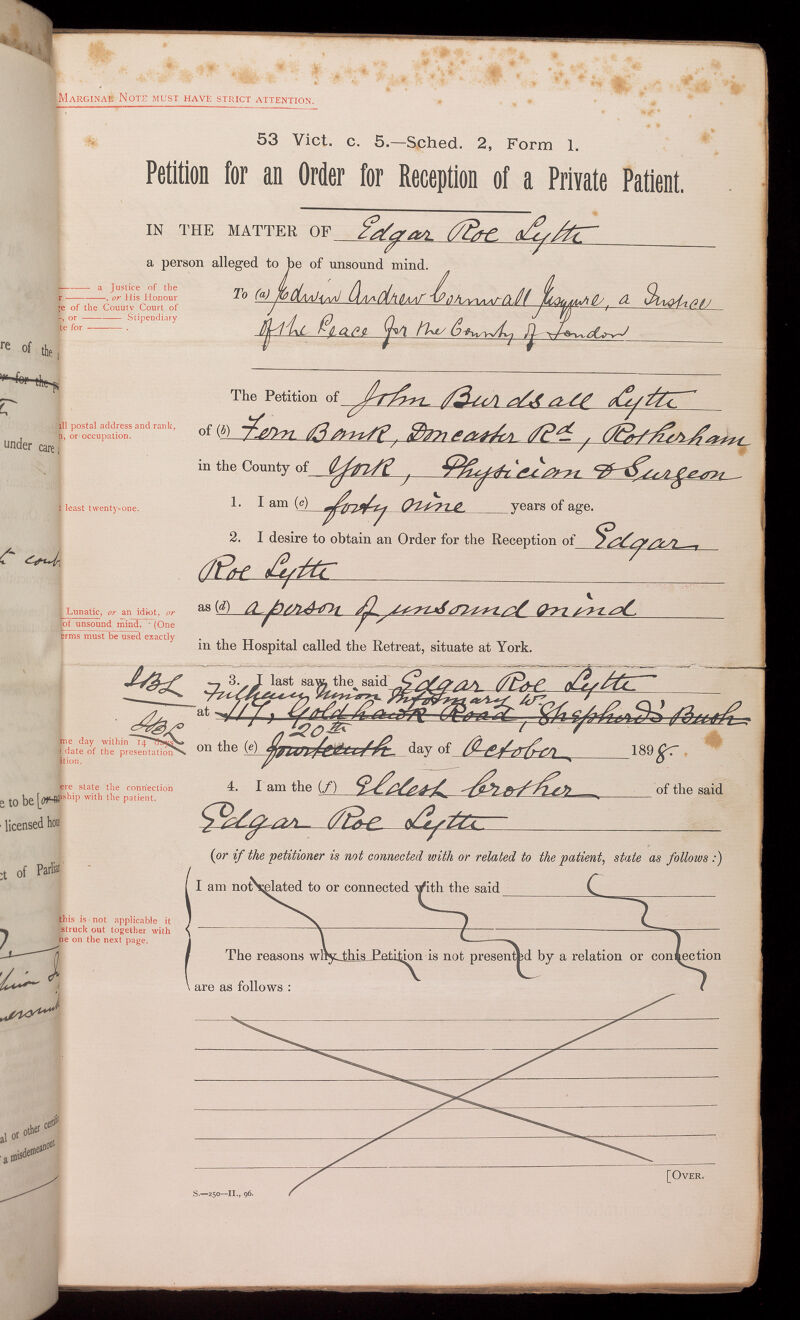 MARGINAL NOTE MUST HAVE STRICT ATTENTION.
53 Vict. c. 5.—Sched. 2, Form 1.
Petition for an Order for Reception of a Private Patient.
IN THE MATTER OF Edgar Roe Lytte
a person alleged to be of unsound mind.
a Justice of the
, or His Honour
of the County Court of
, or Stipendiary
for
To (a) Edwin Andrew Cornwall Esquire, a Justice
of the Peace for the County of London
The Petition of John Burdsall Lytte
postal address and rank,
or occupation.
of (b) Fern Bank, Doncaster Rd, Rotherham
in the County of York, Physician & Surgeon
least twenty-one.
1. I am (c) forty nine years of age.
2. I desire to obtain an Order for the Reception of Edgar
Roe Lytte
Lunatic, or an idiot, or
of unsound mind. (One
must be used exactly
as (d) a person of unsound mind
in the Hospital called the Retreat, situate at York.
JBL
3. I last saw the said Edgar Roe Lytte
Fulham Union Infirmary W.
at 117, Goldhawk Road, Shepherd's Bush
JBL
20th
day within 14 days
date of the presentation
on the (e) fourteenth day of October 1898.
state the connection
with the patient.
4. I am the (f) Eldest brother of the said
Edgar Roe Lytte
(or if the petitioner is not connected with or related to the patient, state as follows :)
I am not related to or connected with the said
this is not applicable it
struck out together with
on the next page.
The reasons why this Petition is not presented by a relation or connection
are as follows :
[OVER.
S.—250—II., 96.
re of the
under care
e to be
licensed
ct of
al or other
a misdemeanour